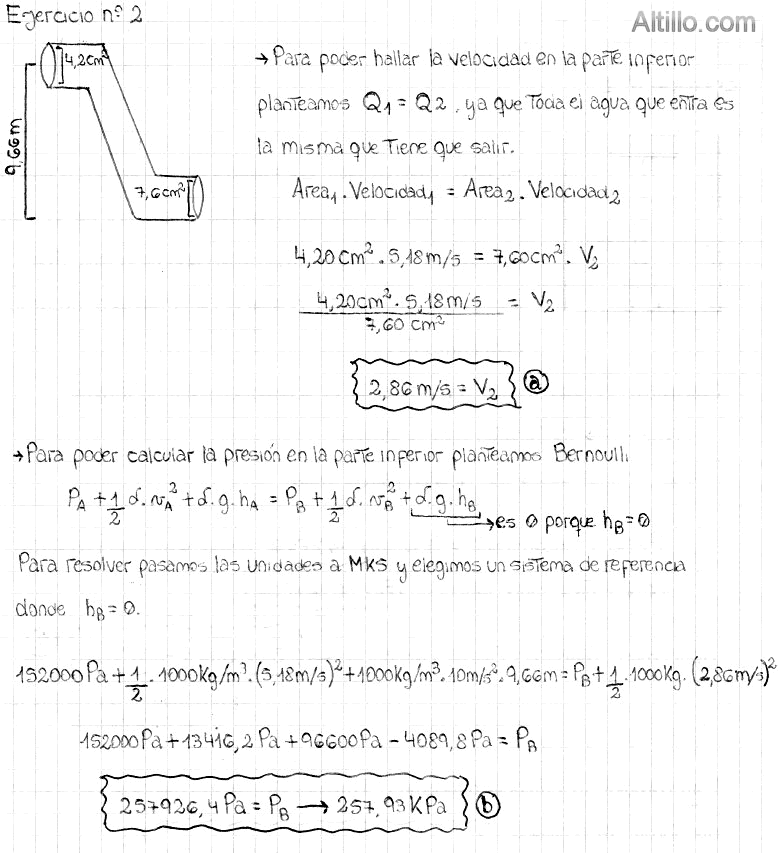 Ejercicio nº 2
Altillo.com
4,2cm²
9,66m
7,6cm²
→ Para poder hallar la velocidad en la parte inferior
planteamos Q1 = Q2, ya que toda el agua que entra es
la misma que tiene que salir.
Area₁ . Velocidad₁ = Area₂ . Velocidad₂
4,20cm² . 5,18m/s = 7,60cm² . V₂
4,20cm² . 5,18m/s = V₂
7,60 cm²
2,86m/s = V₂ ⓐ
→ Para poder calcular la presión en la parte inferior planteamos Bernoulli
P_A + 1/2 d. v_A² + d. g. h_A = P_B + 1/2 d. v_B² + d. g. h_B
→ es 0 porque h_B = 0
Para resolver pasamos las unidades a MKS y elegimos un sistema de referencia
donde h_B = 0.
152000Pa + 1/2 . 1000Kg/m³ . (5,18m/s)² + 1000Kg/m³ . 10m/s² . 9,66m = P_B + 1/2 . 1000Kg . (2,86m/s)²
152000Pa + 13416,2Pa + 96600Pa - 4089,8Pa = P_B
257926,4Pa = P_B → 257,93KPa ⓑ